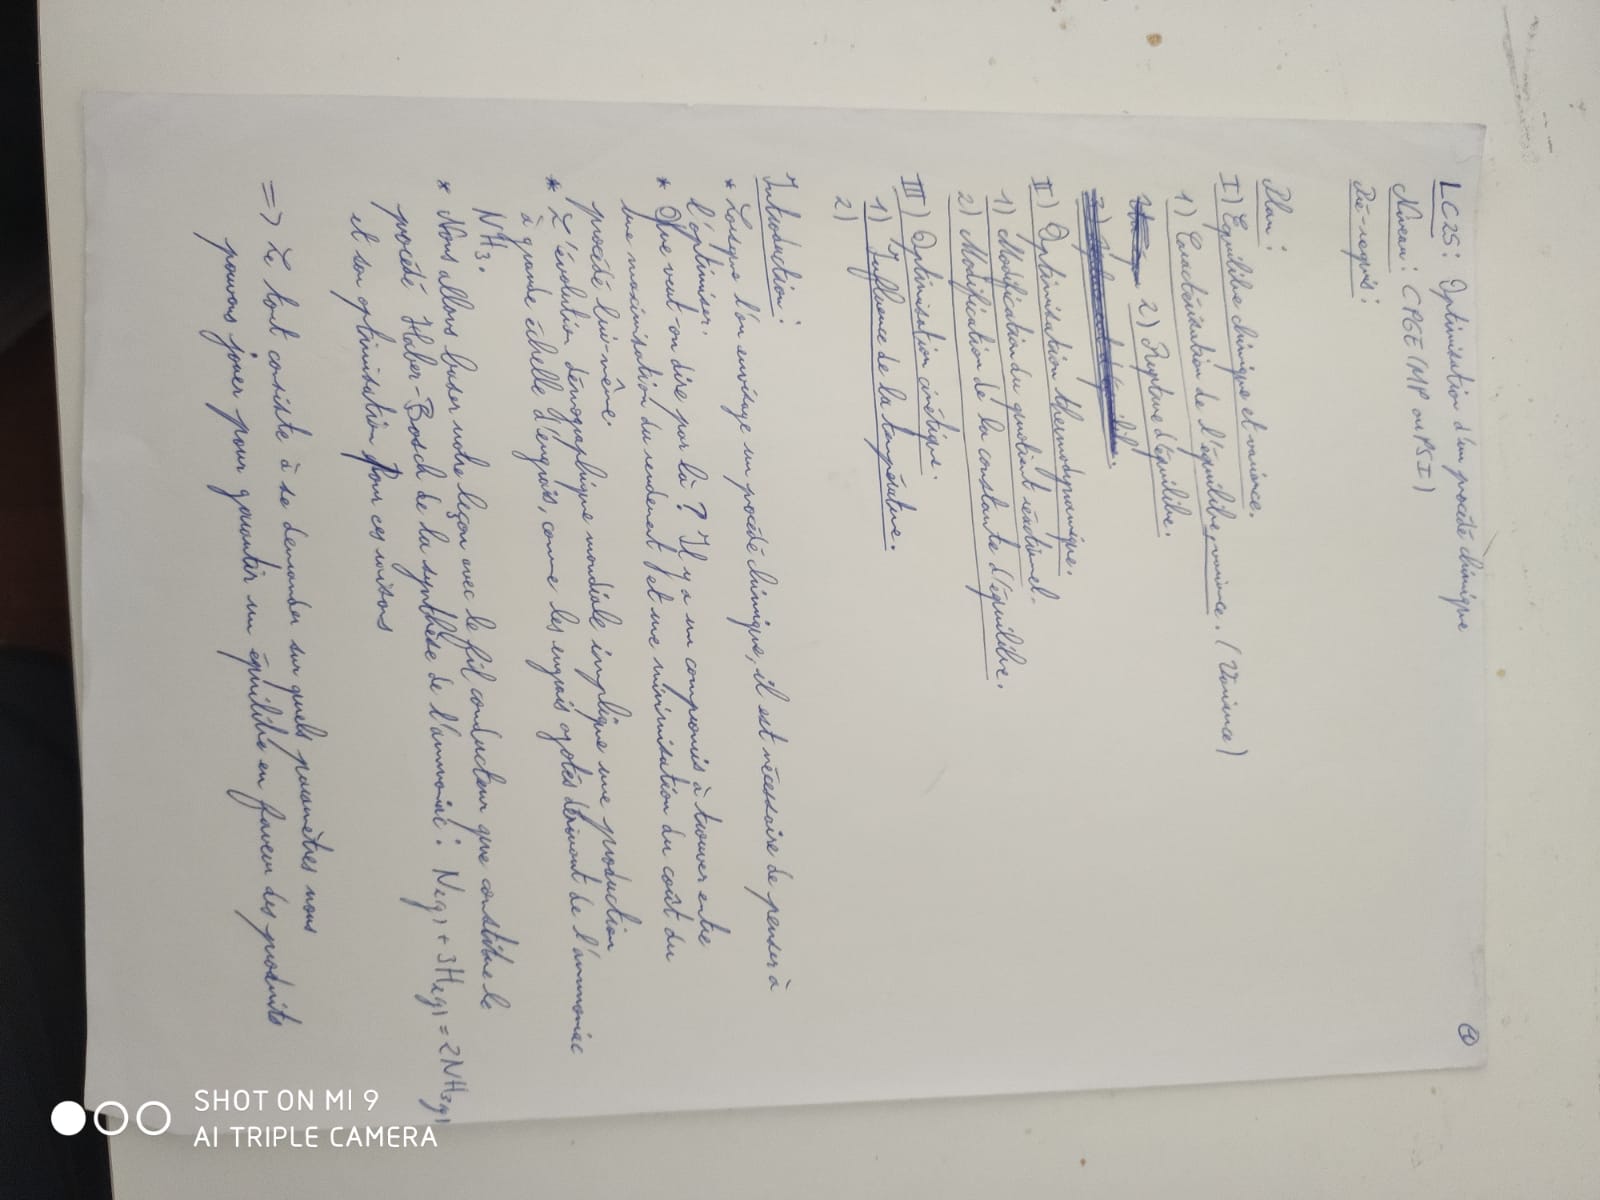 ①
LC25: Optimisation d'un procédé chimique
Niveau: CPGE (MP ou PSI)
Pré-requis:
Plan:
I) Equilibre chimique et variance.
1) Caractérisation de l'équilibre, variance. (Variance)
2) Rupture d'équilibre.
3) Déplacement d'équilibre.
II) Optimisation thermodynamique.
1) Modification du quotient réactionnel.
2) Modification de la constante d'équilibre.
III) Optimisation cinétique.
1) Influence de la température.
2)
Introduction:
* Lorsque l'on envisage un procédé chimique, il est nécessaire de penser à
l'optimiser.
* Que veut-on dire par là ? Il y a un compromis à trouver entre
une maximisation du rendement et une minimisation du coût du
procédé lui-même.
* L'évolution démographique mondiale implique une production
à grande échelle d'engrais, comme les engrais azotés dérivant de l'ammoniac
NH3.
* Nous allons baser notre leçon avec le fil conducteur que constitue le
procédé Haber-Bosch de la synthèse de l'ammoniac : N2(g) + 3H2(g) = 2NH3(g)
et son optimisation Pour ces raisons
=> Le tout consiste à se demander sur quels paramètres nous
pouvons jouer pour garantir un équilibre en faveur des produits
SHOT ON MI 9
AI TRIPLE CAMERA